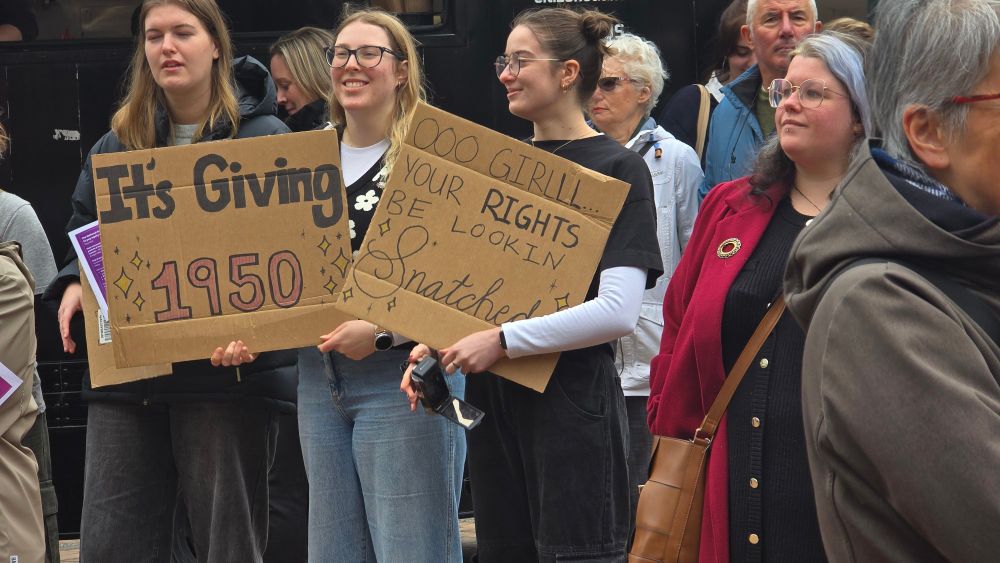 It's Giving
1950
OOO GIRLLL...
YOUR RIGHTS
BE LOOKIN
Snatched